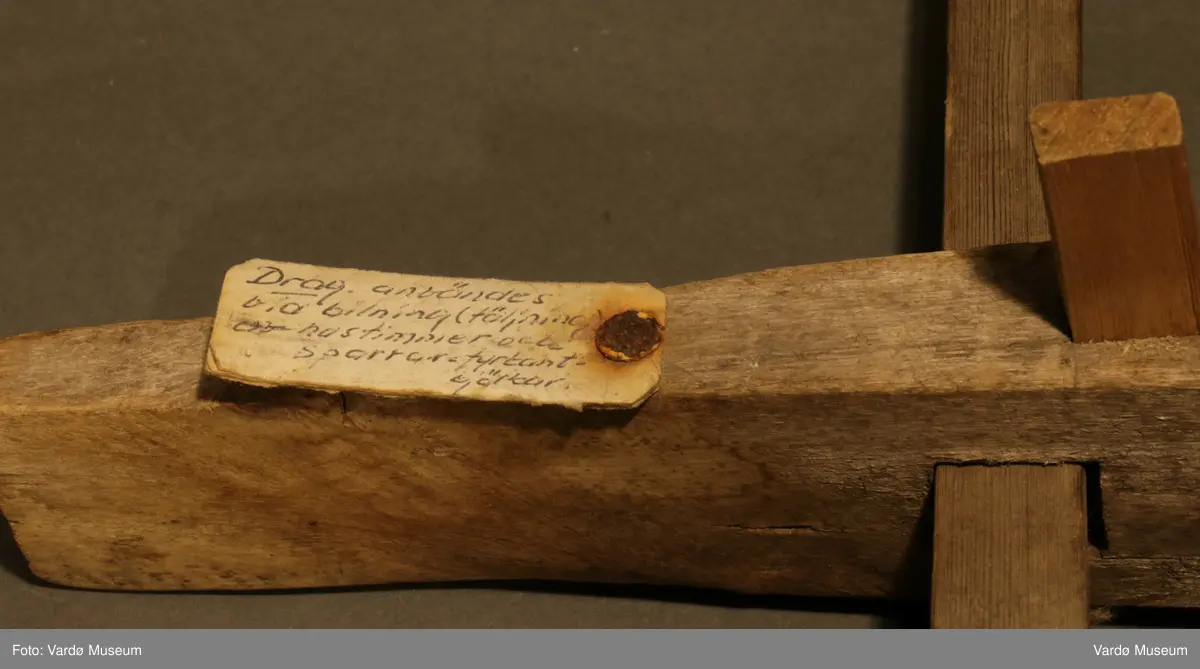 Drag. användes
vid bilning (täljning)
av hustimmer och
sparrar = fyrkant-
bjälkar.
Foto: Vardø Museum
Vardø Museum